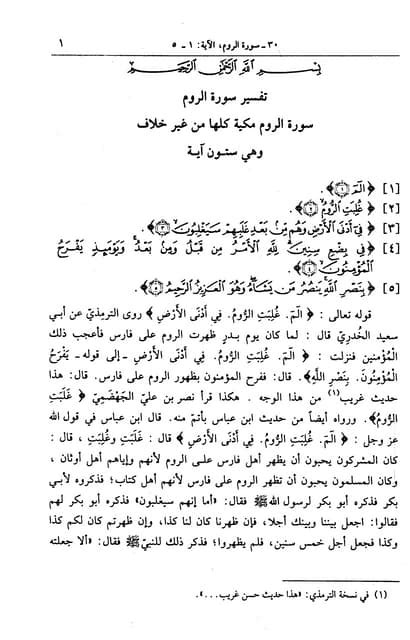 ٣٠ - سورة الروم، الآية: ١ - ٥ ١
بِسْمِ اللَّهِ الرَّحْمَٰنِ الرَّحِيمِ
تفسير سورة الروم
سورة الروم مكية كلها من غير خلاف
وهي ستون آية
[١] ﴿ الٓمٓ ۝١ ﴾.
[٢] ﴿ غُلِبَتِ الرُّومُ ۝٢ ﴾.
[٣] ﴿ فِىٓ أَدْنَى الْأَرْضِ وَهُم مِّنۢ بَعْدِ غَلَبِهِمْ سَيَغْلِبُونَ ۝٣ ﴾.
[٤] ﴿ فِى بِضْعِ سِنِينَ ۗ لِلَّهِ الْأَمْرُ مِن قَبْلُ وَمِنۢ بَعْدُ ۚ وَيَوْمَئِذٍ يَفْرَحُ
الْمُؤْمِنُونَ ۝٤ ﴾.
[٥] ﴿ بِنَصْرِ اللَّهِ ۚ يَنصُرُ مَن يَشَآءُ ۖ وَهُوَ الْعَزِيزُ الرَّحِيمُ ۝٥ ﴾.
قوله تعالى : ﴿ الٓمٓ. غُلِبَتِ الرُّومُ. فِي أَدْنَى الأَرْضِ ﴾ روى الترمذيّ عن أبي
سعيد الخُدريّ قال : لما كان يوم بدرٍ ظهرت الروم على فارس فأعجب ذلك
المؤمنين فنزلت : ﴿ الٓمٓ. غُلِبَتِ الرُّومُ. فِي أَدْنَى الأَرْضِ - إلى قوله - يَفْرَحُ
المُؤْمِنُونَ. بِنَصْرِ اللَّهِ﴾. قال: ففرح المؤمنون بظهور الروم على فارس. قال: هذا
حديث غريب(١) من هذا الوجه . هكذا قرأ نصر بن عليّ الجَهْضَمِيّ ﴿ غَلَبَتِ
الرُّومُ﴾. ورواه أيضاً من حديث ابن عباس بأتمّ منه. قال ابن عباس في قول الله
عز وجل : ﴿ الٓمٓ. غُلِبَتِ الرُّومُ. فِي أَدْنَى الأَرْضِ ﴾ قال : غَلَبَت وغُلِبَت ، قال :
كان المشركون يحبون أن يظهر أهل فارس على الروم لأنهم وإياهم أهل أوثان ،
وكان المسلمون يحبون أن تظهر الروم على فارس لأنهم أهل كتاب؛ فذكروه لأبي
بكر فذكره أبو بكر لرسول الله ﷺ فقال: «أما إنهم سيغلبون» فذكره أبو بكر لهم
فقالوا: اجعل بيننا وبينك أجلا، فإن ظهرنا كان لنا كذا، وإن ظهرتم كان لكم كذا
وكذا فجعل أجل خمس سنين، فلم يظهروا؛ فذكر ذلك للنبيّ ﷺ فقال: «ألا جعلته
(١) في نسخة الترمذي: «هذا حديث حسن غريب...».